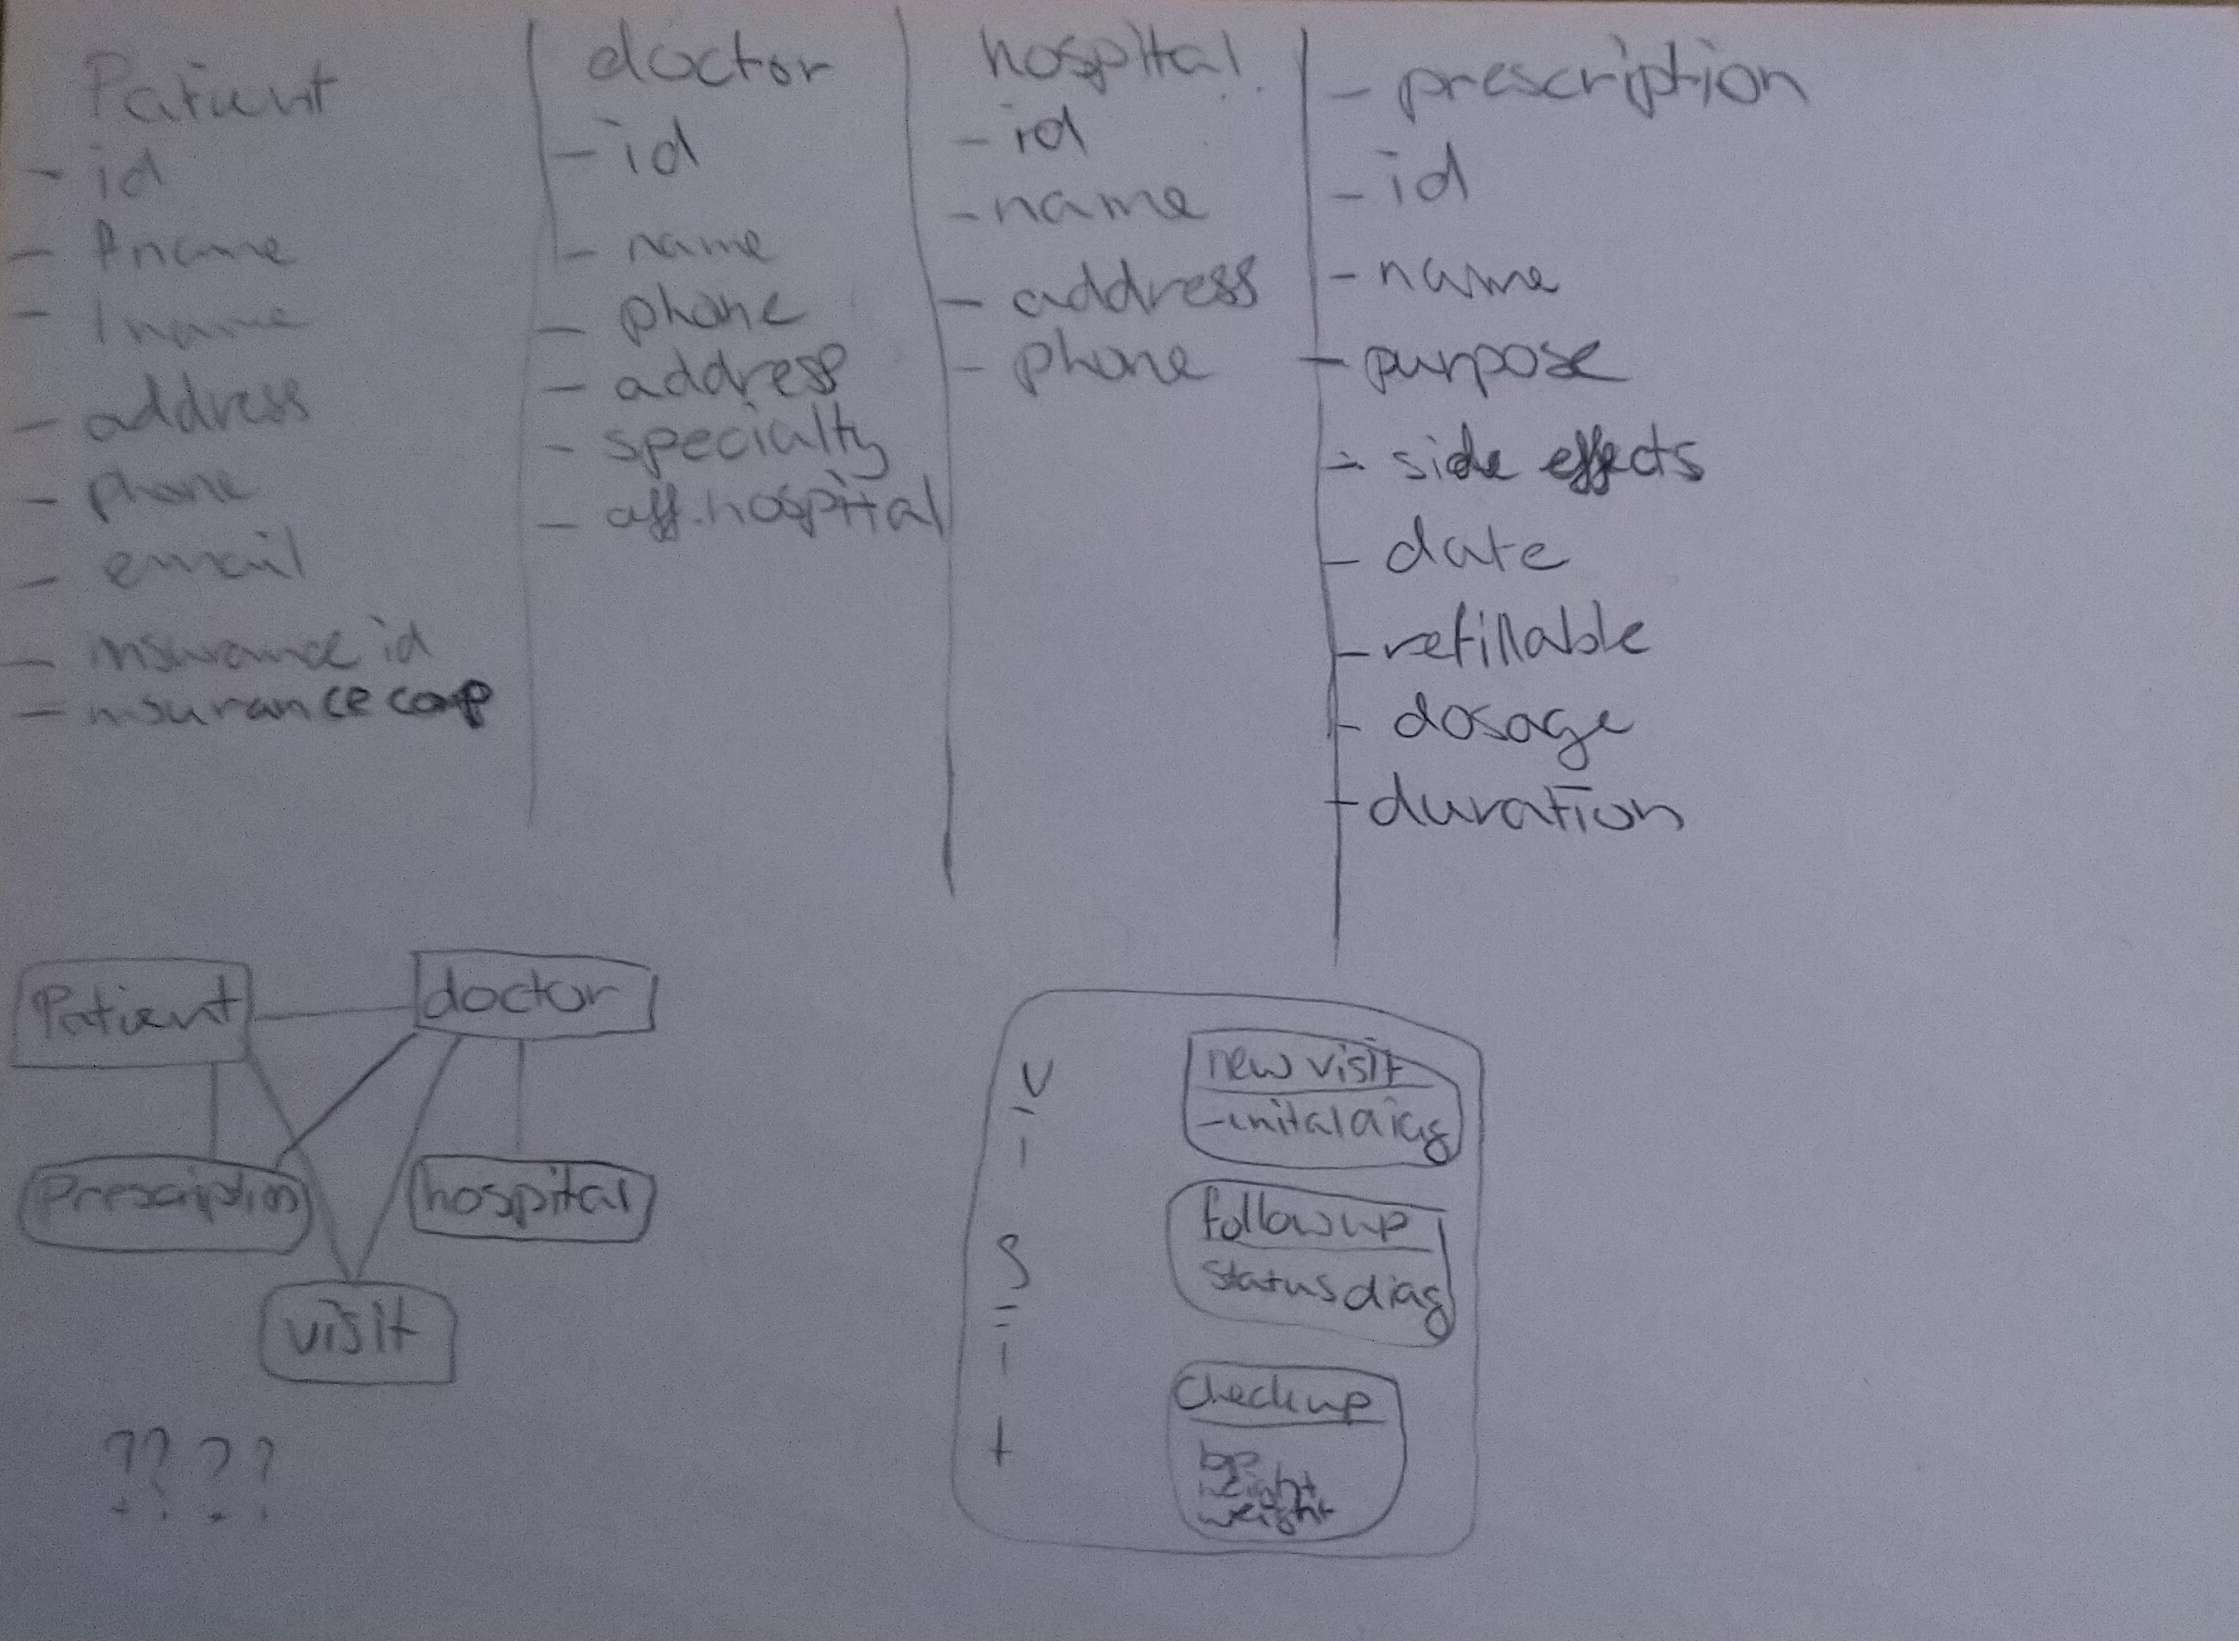 Patient
- id
- fname
- lname
- address
- phone
- email
- insurance id
- insurance corp
doctor
- id
- name
- phone
- address
- specialty
- aff. hospital
hospital
- id
- name
- address
- phone
- prescription
- id
- name
- purpose
- side effects
- date
- refillable
- dosage
- duration
Patient
doctor
Prescription
hospital
visit
?? ? ?
V
i
S
i
t
new visit
- inital diag
followup
status diag
Checkup
bp
height
weight